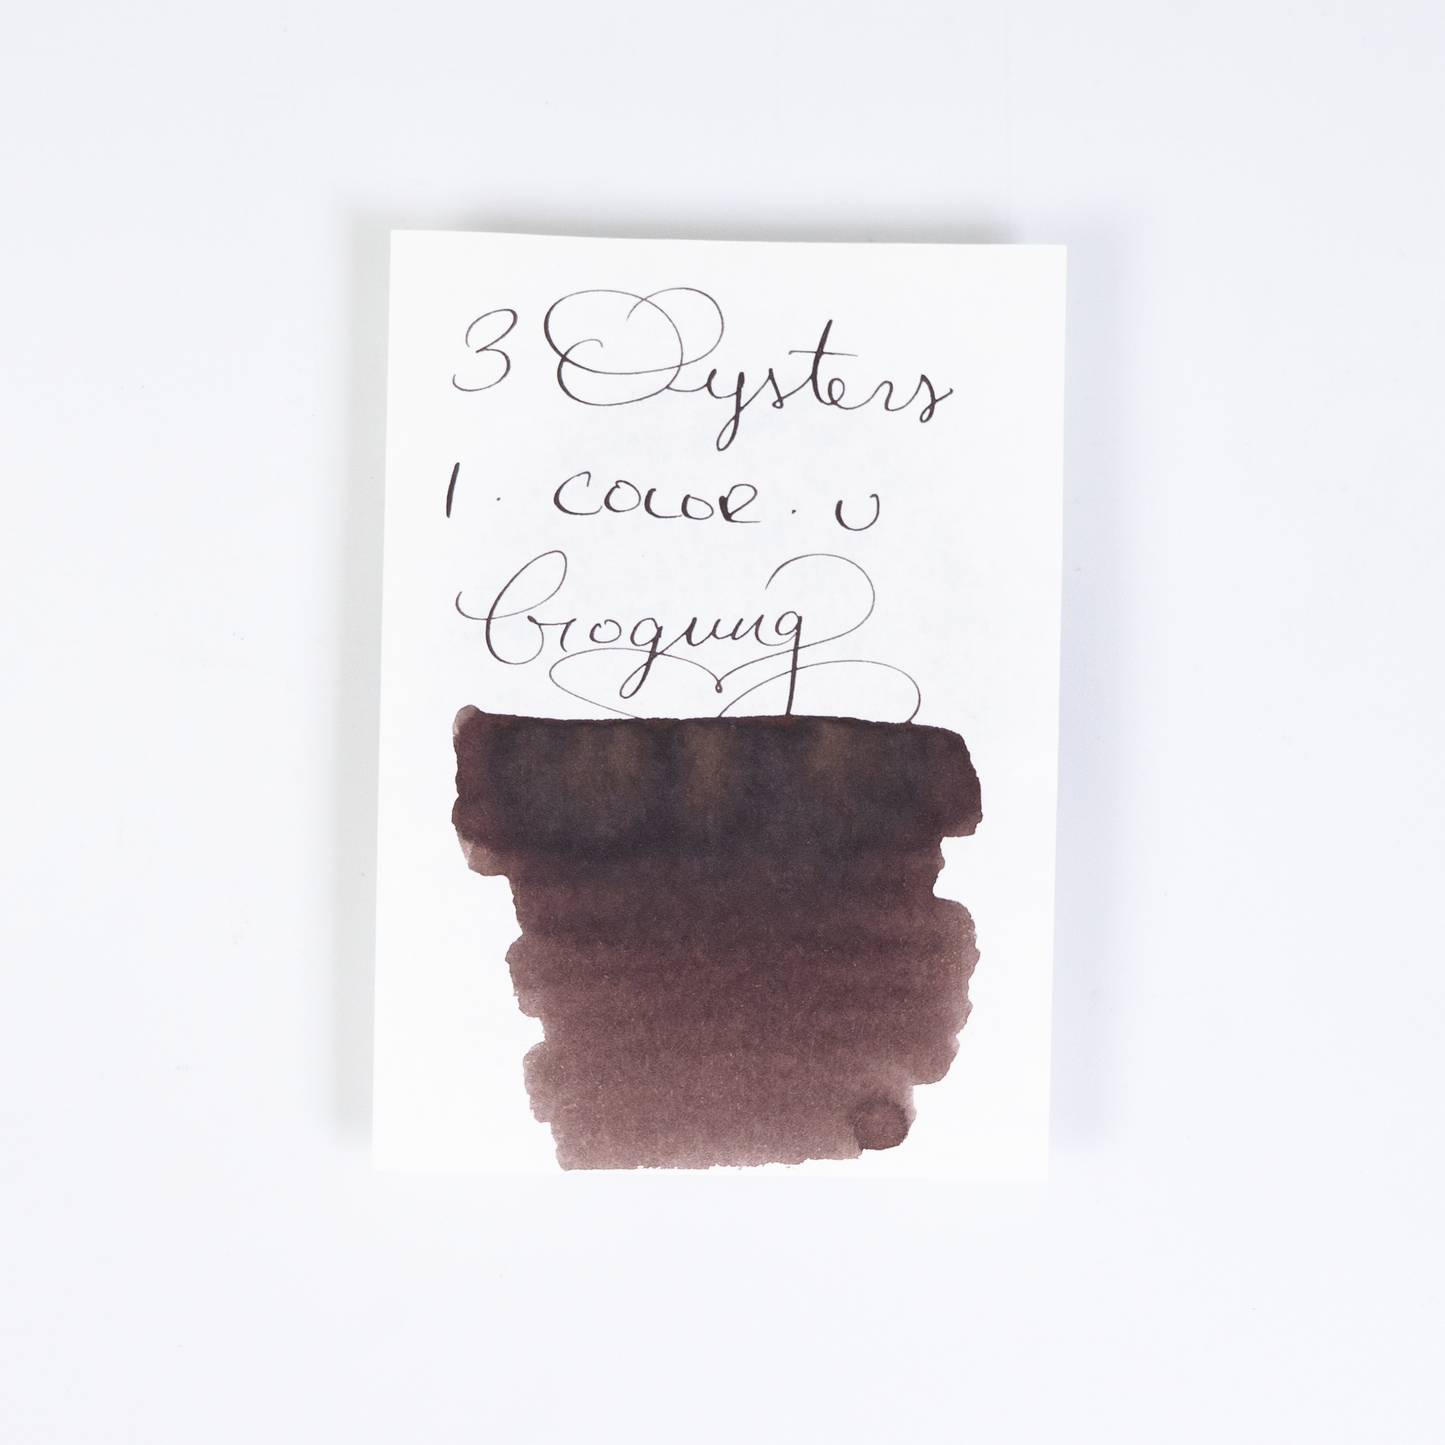 3 Oysters
I . COLOR . U
brogung